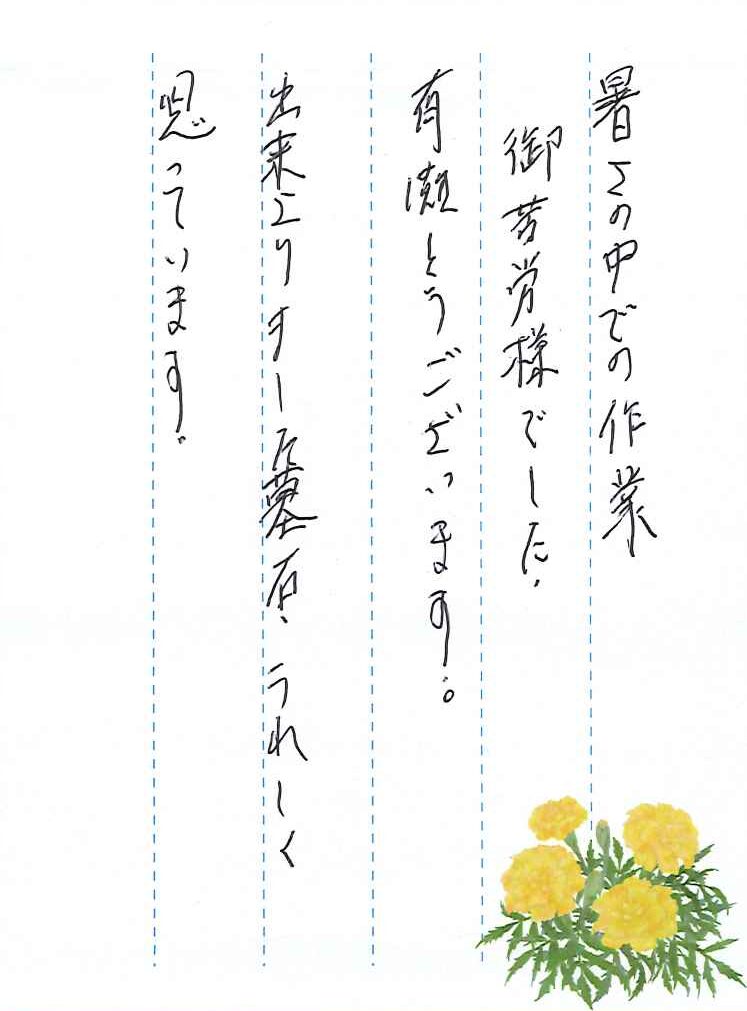 暑さの中での作業
御苦労様でした。
有難とうございます。
出来上りました墓石、うれしく
思っています。